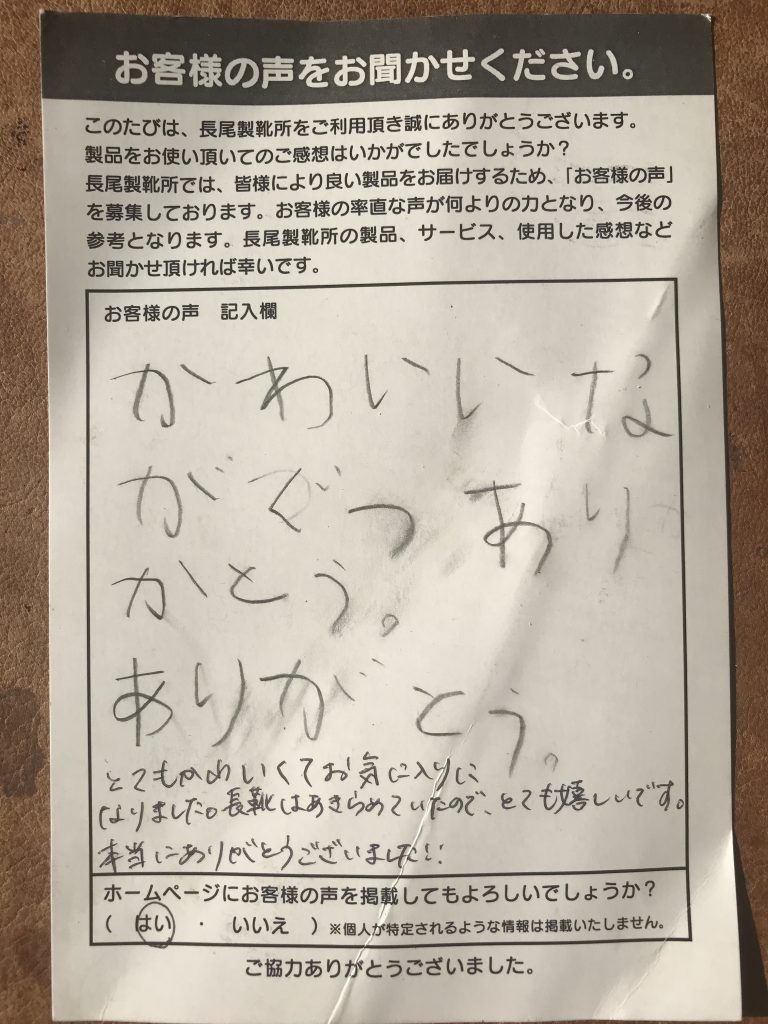 お客様の声をお聞かせください。
このたびは、長尾製靴所をご利用頂き誠にありがとうございます。
製品をお使い頂いてのご感想はいかがでしたでしょうか？
長尾製靴所では、皆様により良い製品をお届けするため、「お客様の声」
を募集しております。お客様の率直な声が何よりの力となり、今後の
参考となります。長尾製靴所の製品、サービス、使用した感想など
お聞かせ頂ければ幸いです。
お客様の声　記入欄
かわいいな
がぐつあり
かとう。
ありがとう。
とてもかわいくてお気に入りに
なりました。長靴はあきらめていたので、とても嬉しいです。
本当にありがとうございました!!
ホームページにお客様の声を掲載してもよろしいでしょうか？
（　はい　・　いいえ　）※個人が特定されるような情報は掲載いたしません。
ご協力ありがとうございました。